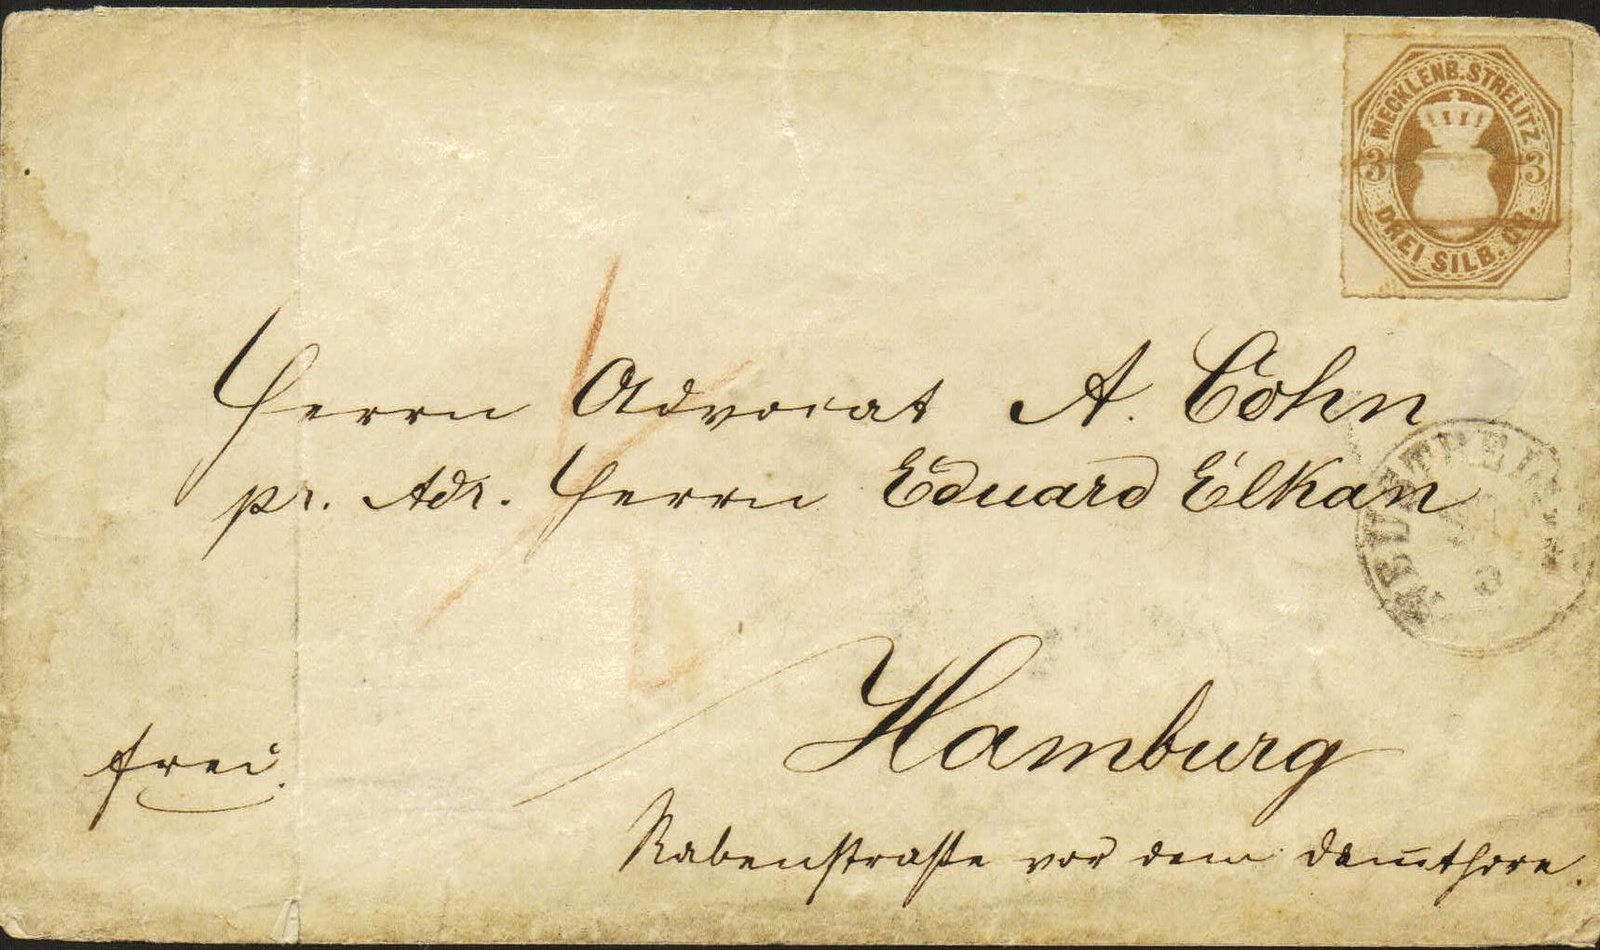 MECKLENB. STRELITZ
3 3
DREI SILB. GR.
Herrn Advocat A. Cohn
pr. Adr. Herrn Eduard Elkan
NEUSTRELITZ
Hamburg
frei.
Rabenstraße vor dem Dam̅thore.